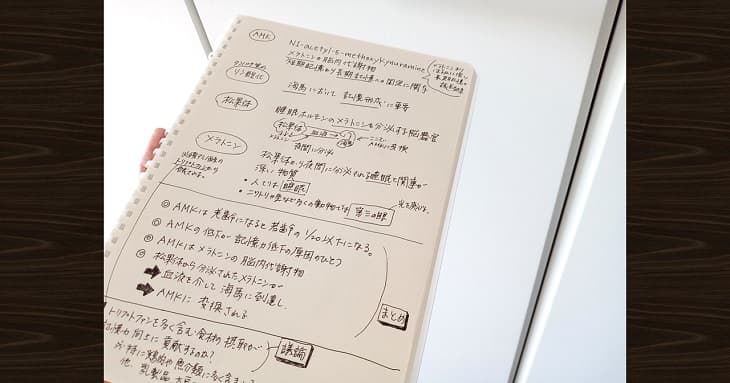 AMK
N1-acetyl-5-methoxykynuramine
メラトニンの脳内代謝物
短期記憶から長期記憶への固定に関与
タンパク質の
リン酸化
海馬において 記憶形成に重要
松果体
睡眠ホルモンのメラトニンを分泌する脳器官
松果体 血液
メラトニン
海馬
AMKに変換
夜間に分泌
メラトニン
松果体から夜間に分泌される睡眠と関連が
深い物質
・人では 睡眠
・ニワトリや魚など多くの動物では 第三の眼
光を感じる
◎ AMKは老齢になると若齢の1/20以下になる。
◎ AMKの低下が記憶力低下の原因のひとつ
◎ AMKはメラトニンの脳内代謝物
◎ 松果体から分泌されたメラトニンが
➡ 血液を介して海馬に到達し
➡ AMKに変換される
まとめ
トリプトファンを多く含む食材の摂取が
記憶力向上に貢献するのか?
議論
特に鶏肉や魚介類に多く含ま
他、乳製品、大豆